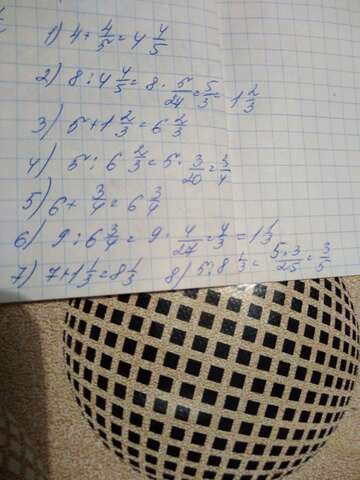 1) 4 + 4/5 = 4 4/5
2) 8 : 4 4/5 = 8 · 5/24 = 5/3 = 1 2/3
3) 5 + 1 2/3 = 6 2/3
4) 5 : 6 2/3 = 5 · 3/20 = 3/4
5) 6 + 3/4 = 6 3/4
6) 9 : 6 3/4 = 9 · 4/27 = 4/3 = 1 1/3
7) 7 + 1 1/3 = 8 1/3 8) 5 : 8 1/3 = 5·3/25 = 3/5